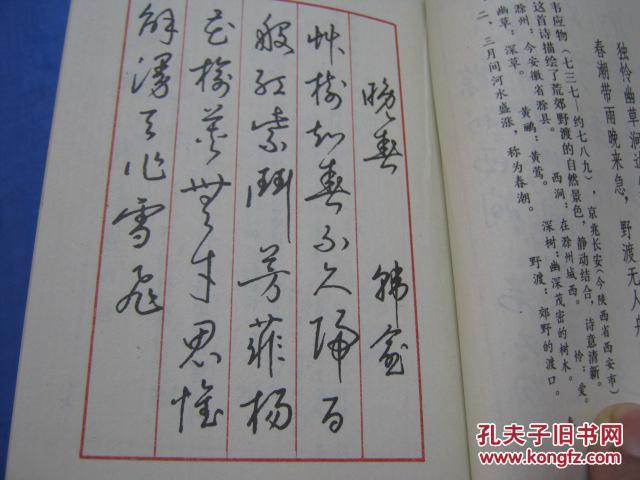 独怜幽草涧边
春潮带雨晚来急，野渡无人舟
韦应物（七三七—约七八九），京兆长安（今陕西省西安市）
这首诗描绘了荒郊野渡的自然景色，静动结合，诗意清新。
滁州：今安徽省滁县。 西涧：在滁州城西。 怜：爱。
幽草：深草。 黄鹂：黄莺。 深树：幽深茂密的树木。
二、三月间河水盛涨，称为春潮。 野渡：郊野的渡口。
晚春 韩愈
艸树知春不久归百
般红紫鬥芳菲杨
花榆荚無才思惟
解漫天作雪飛
孔夫子旧书网
www.kongfz.com